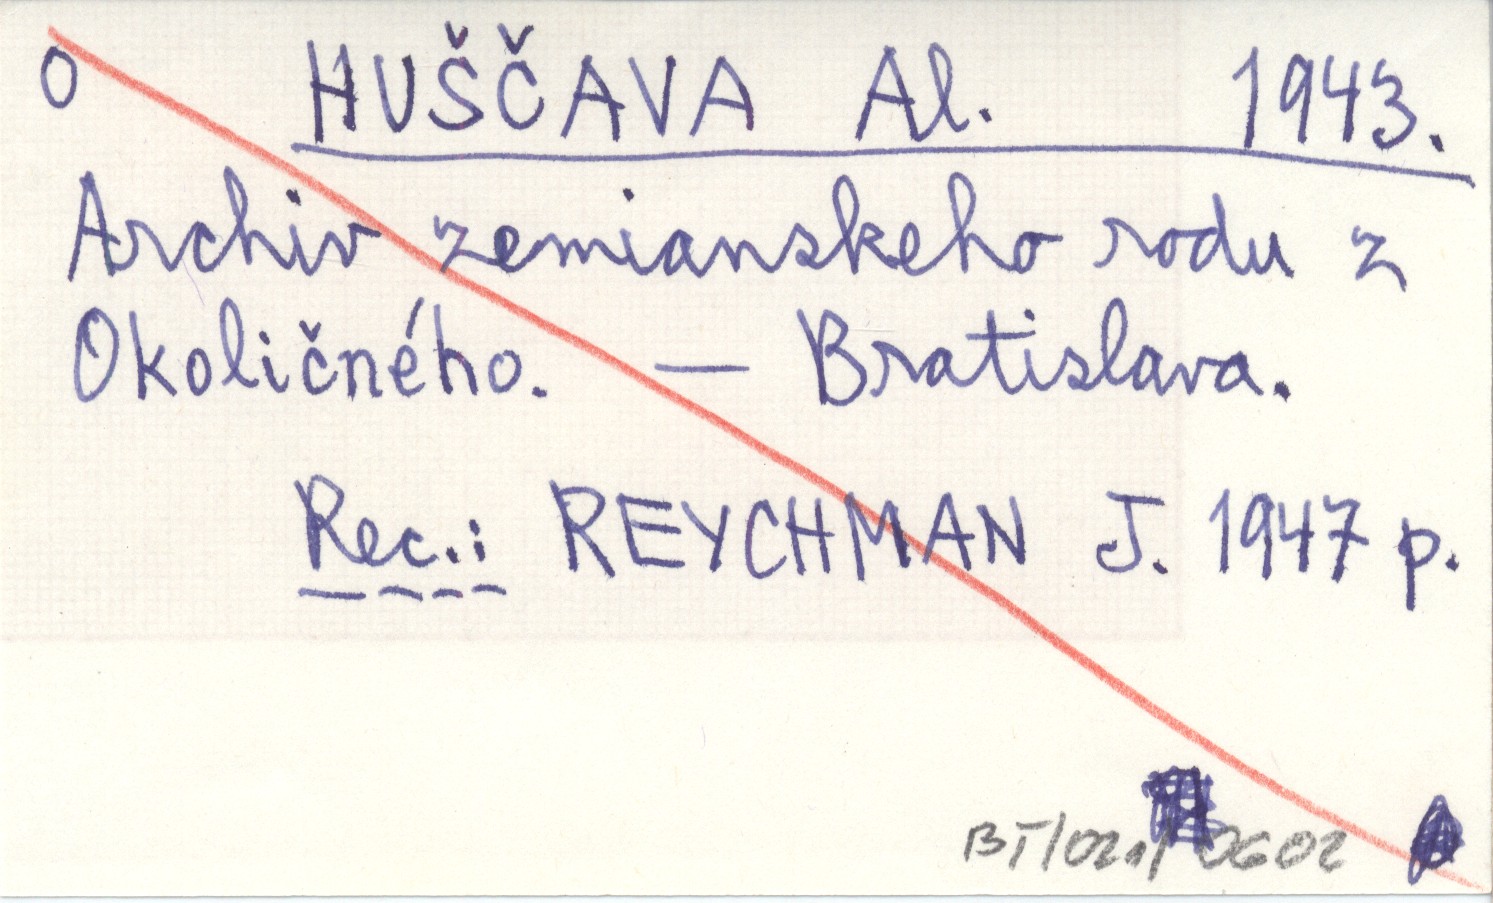 O HUŠČAVA Al. 1943.
Archiv zemianskeho rodu z
Okoličného. — Bratislava.
Rec.: REYCHMAN J. 1947 p.
BT/021/0602